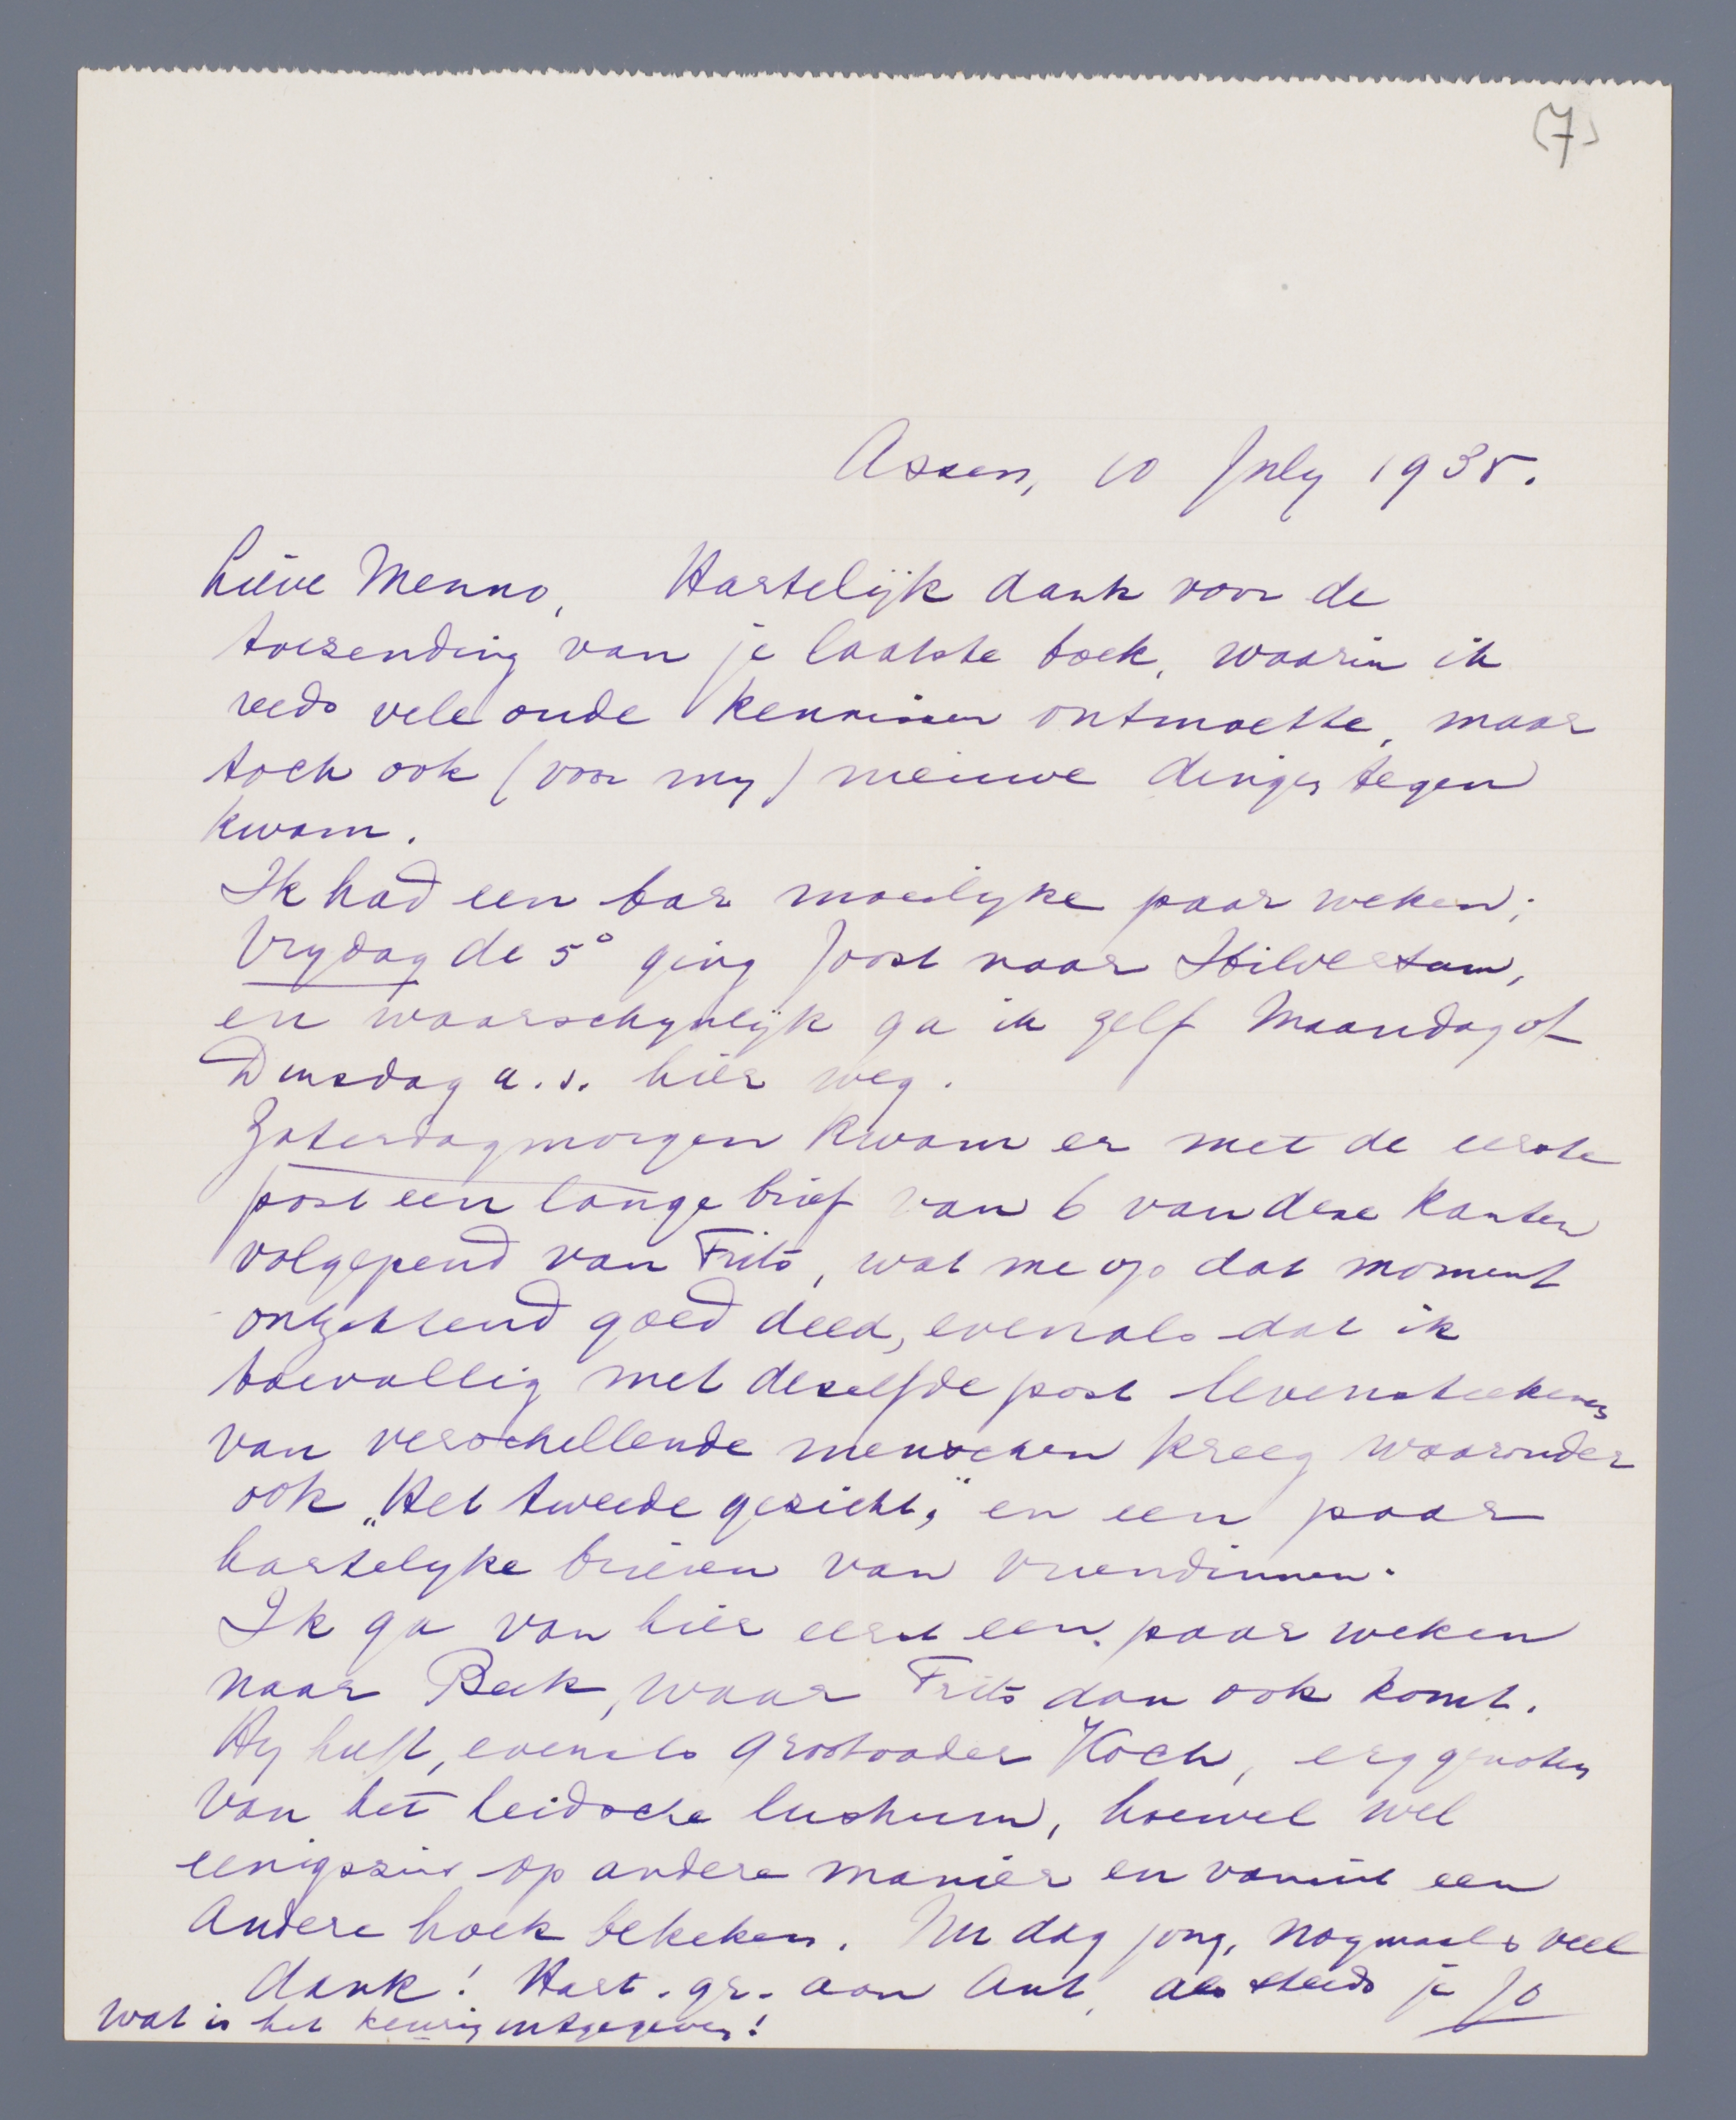 (7)
Assen, 10 July 1935.
Lieve Menno, Hartelijk dank voor de
toezending van je laatste boek, waarin ik
reeds vele oude kennissen ontmoette, maar
toch ook (voor my) nieuwe dingen tegen
kwam.
Ik had een bar moeilyke paar weken;
Vrydag de 5° ging Joost naar Hilversum,
en waarschynlijk ga ik zelf Maandag of
Dinsdag a.s. hier weg.
Zaterdagmorgen kwam er met de eerste
post een lange brief van 6 van deze kanten
volgepend van Frits, wat me op dat moment
ontzettend goed deed, evenals dat ik
toevallig met dezelfde post levensteekenen
van verschillende menschen kreeg waaronder
ook „Het tweede gezicht," en een paar
hartelyke brieven van vriendinnen.
Ik ga van hier eerst een paar weken
naar Beek, waar Frits dan ook komt.
Hy heeft, evenals Grootvader Koch, erg genoten
van het Leidsche lustrum, hoewel wel
eenigszins op andere manier en vanuit een
andere hoek bekeken. Nu dag jong, nogmaals veel
dank! Hart. gr. aan Ant, als steeds je Jo
Wat is het keurig uitgegeven!